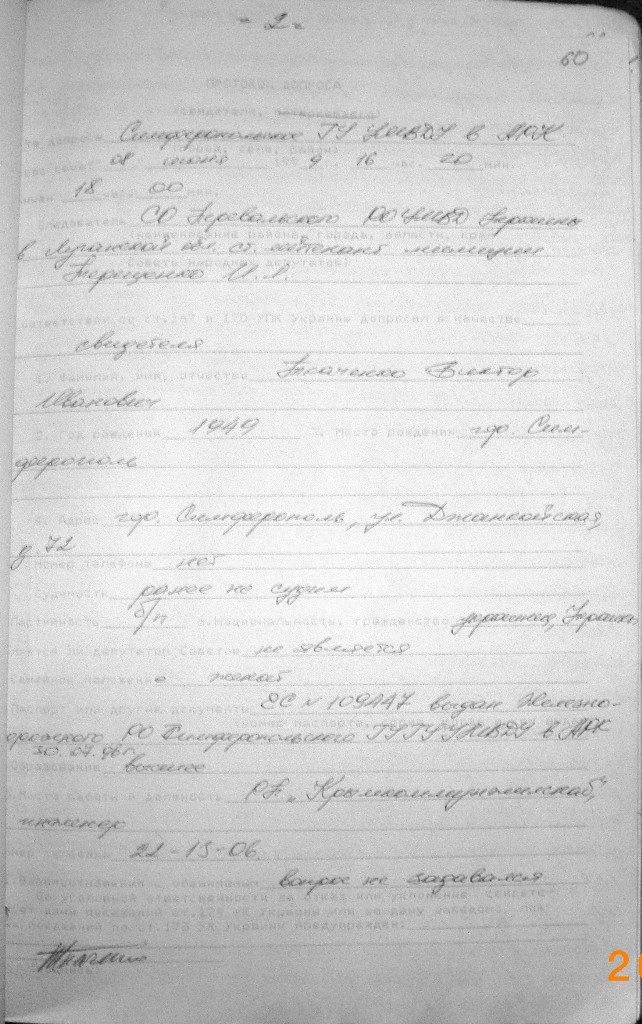 - 2 -
60
ПРОТОКОЛ ДОПРОСА
(свидетеля, потерпевшего)
допроса Симферопольское ГУ УМВДУ в АРК
(город, село, район)
08 июня 9 16 час. 20 мин.
18 час. 00 мин.
Следователь СО Перевальского РОУМВД Украины
(наименование района, города, области, края
в Луганской обл. ст. лейтенант милиции
Совета народных депутатов)
Терещенко И.А.
соответствии со ст.167 и 170 УПК Украины допросил в качестве
свидетеля
1. Фамилия, имя, отчество Ткаченко Виктор
Иванович
2. Год рождения 1949 3. Место рождения гор. Сим-
ферополь
4. Адрес гор. Симферополь, ул. Джанкойская,
д. 72
Номер телефона нет
Судимость ранее не судим
Партийность б/п 8.Национальность, гражданство украинец, Украина
является ли депутатом Советов не является
Семейное положение женат
Паспорт или другие документы ЕС N 109447 выдан Железно-
дорожного РО Симферопольского ГУ УМВДУ в АРК
30.07.96г.
образование высшее
Место работы и должность "Крымкоммунжилснаб",
инженер
номер телефона 22-15-06.
вопрос не задавался
об уголовной ответственности за отказ или уклонение свидете-
дачи показаний ст.179 УК Украины или за дачу заведомо лож-
показаний по ст.178 УК Украины предупрежден:
2